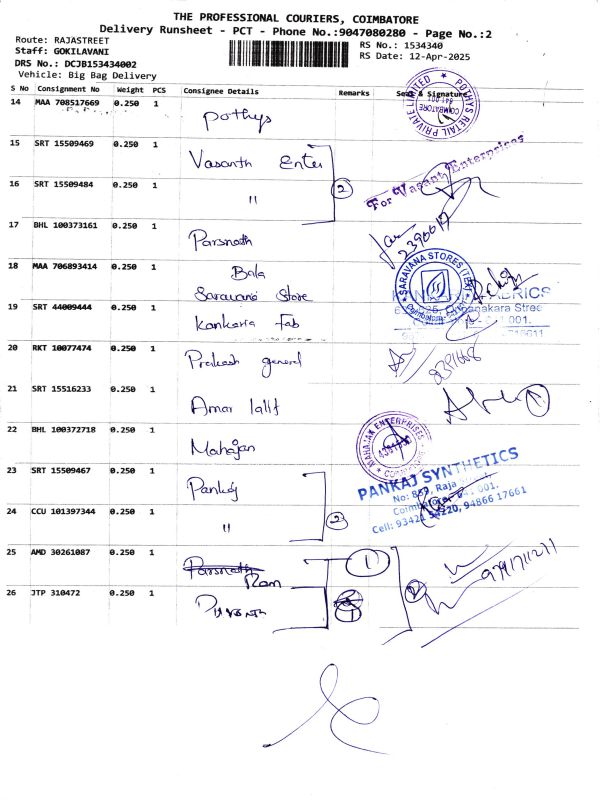 THE PROFESSIONAL COURIERS, COIMBATORE
Delivery Runsheet - PCT - Phone No.:9047080280 - Page No.:2
Route: RAJASTREET
Staff: GOKILAVANI
DRS No.: DCJB153434002
Vehicle: Big Bag Delivery
RS No.: 1534340
RS Date: 12-Apr-2025
S No Consignment No Weight PCS Consignee Details Remarks Seal & Signature
14 MAA 708517669 0.250 1 Pothys
POTHYS RETAIL PRIVATE LIMITED
COIMBATORE
641 001
15 SRT 15509469 0.250 1 Vasanth Enter
For Vasant Enterprises
16 SRT 15509484 0.250 1 " 2
17 BHL 100373161 0.250 1 Parsnath
18 MAA 706893414 0.250 1 Bala
Saravana Store
SARAVANA STORES (TEX)
19 SRT 44009444 0.250 1 Kankaria Fab
20 RKT 10077474 0.250 1 Prakash general
21 SRT 15516233 0.250 1 Amar lalit 1
22 BHL 100372718 0.250 1 Mahajan
MAHAJAN ENTERPRISES
23 SRT 15509467 0.250 1 Pankaj
PANKAJ SYNTHETICS
No: 859, Raja
Coimbatore 001.
Cell: 93421 54220, 94866 17661
24 CCU 101397344 0.250 1 " 2
25 AMD 30261087 0.250 1 Parsnath 1
Ram
9791711271
26 JTP 310472 0.250 1 1